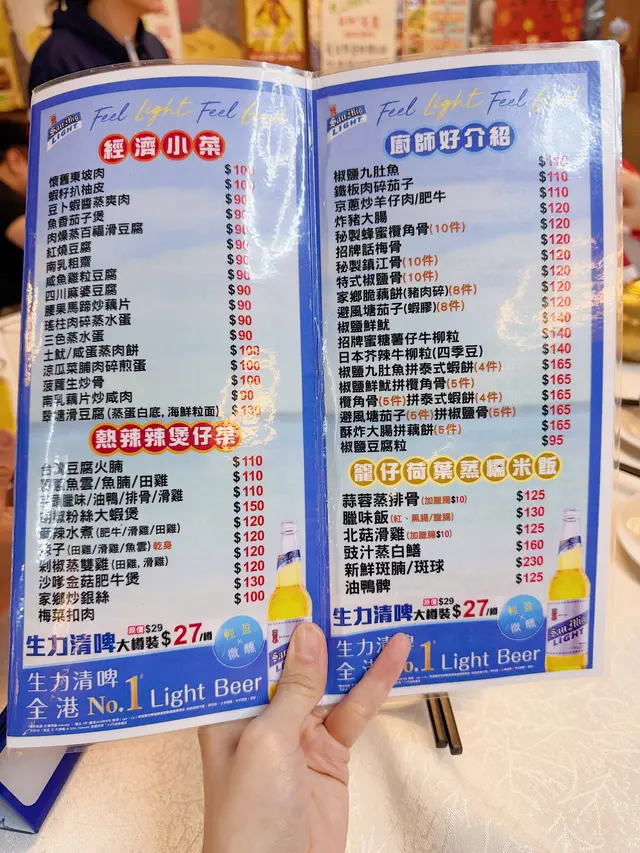 San Mig LIGHT
Feel Light Feel Good
經濟小菜
懷舊東坡肉 $100
蝦籽扒柚皮 $100
豆卜蝦醬蒸爽肉 $90
魚香茄子煲 $90
肉燥蒸百福滑豆腐 $90
紅燒豆腐 $90
南乳粗齋 $90
咸魚雞粒豆腐 $90
四川麻婆豆腐 $90
腰果馬蹄炒藕片 $90
瑤柱肉碎蒸水蛋 $90
三色蒸水蛋 $90
土魷/咸蛋蒸肉餅 $100
涼瓜菜脯肉碎煎蛋 $100
菠蘿生炒骨 $100
南乳藕片炒咸肉 $90
塘滑豆腐(蒸蛋白底, 海鮮粒面) $130
熱辣辣煲仔菜
台灣豆腐火腩 $110
魚雲/魚腩/田雞 $110
臘味/油鴨/排骨/滑雞 $110
胡椒粉絲大蝦煲 $150
麻辣水煮(肥牛/滑雞/田雞) $120
子(田雞/滑雞/魚雲)乾身 $120
剁椒蒸雙雞(田雞, 滑雞) $120
沙嗲金菇肥牛煲 $120
家鄉炒銀絲 $130
梅菜扣肉 $100
生力清啤大樽裝 原價$29 $27/樽
輕盈微醺
生力清啤
全港No.1 Light Beer
San Mig LIGHT
Feel Light Feel Good
廚師好介紹
椒鹽九肚魚 $110
鐵板肉碎茄子 $110
京蔥炒羊仔肉/肥牛 $110
炸豬大腸 $120
秘製蜂蜜欖角骨(10件) $120
招牌話梅骨 $120
秘製鎮江骨(10件) $120
特式椒鹽骨(10件) $120
家鄉脆藕餅(豬肉碎)(8件) $120
避風塘茄子(蝦膠)(8件) $120
椒鹽鮮魷 $140
招牌蜜糖薯仔牛柳粒 $140
日本芥辣牛柳粒(四季豆) $140
椒鹽九肚魚拼泰式蝦餅(4件) $165
椒鹽鮮魷拼欖角骨(5件) $165
椒鹽骨(5件)拼泰式蝦餅(4件) $165
避風塘茄子(5件)拼椒鹽骨(5件) $165
酥炸大腸拼藕餅(5件) $165
椒鹽豆腐粒 $95
籠仔荷葉蒸糯米飯
蒜蓉蒸排骨(加臘腸$10) $125
臘味飯(紅、黑腸/臘腸) $130
北菇滑雞(加臘腸$10) $125
豉汁蒸白鱔 $160
新鮮斑腩/斑球 $230
油鴨髀 $125
生力清啤大樽裝 原價$29 $27/樽
輕盈微醺
生力清啤
全港No.1 Light Beer
San Mig LIGHT